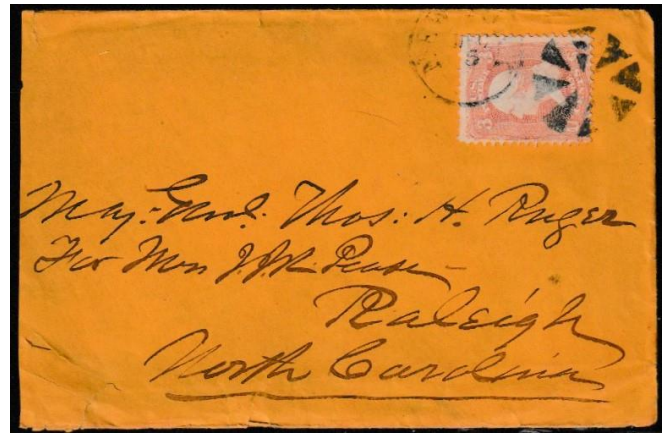 5
3
Maj: Genl: Thos: H. Ruger
For Mrs J. R. Pease
Raleigh
North Carolina